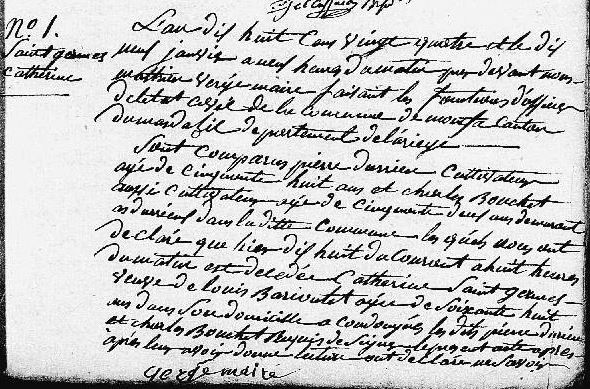 No 1.
Saint germes
Catherine
L'an dix huit Cens vingt quatre et le dix
neuf janvier a neuf heures du matin par devant nous
mathieu Vergé maire faisant les fonctions d'officier
de letat civil de la commune de Canton
du mas dazil departement de lariege
Sont comparus pierre durrieu Cultivateur
agé de Cinquante huit ans et charles Bouchet
aussi Cultivateur agé de Cinquante deux ans demeurant
dans laditte Commune les quels nous ont
declaré que hier dix huit du Courant a huit heures
du matin est decedée Catherine Saint germes
Veuve de louis agée de Soixante huit
ans dans Son domicille a les dits pierre durrieu
et charles Bouchet Requis de Signer le present acte apres
apres leur avoir donné lecture ont declaré ne Savoir
Verge maire